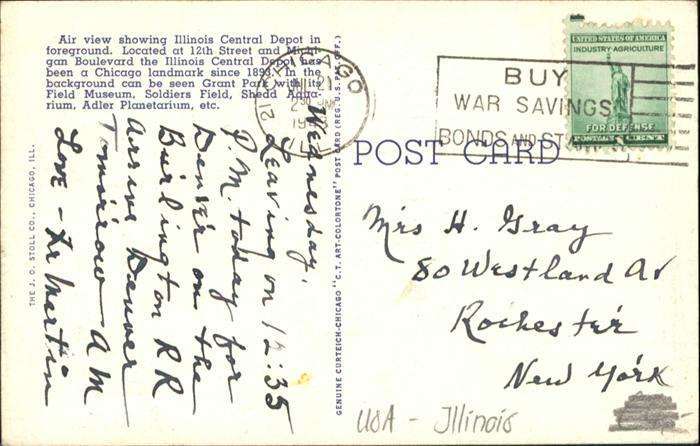 Air view showing Illinois Central Depot in
foreground. Located at 12th Street and Michi-
gan Boulevard the Illinois Central Depot has
been a Chicago landmark since 1893. In the
background can be seen Grant Park with its
Field Museum, Soldiers Field, Shedd Aqua-
rium, Adler Planetarium, etc.
THE J. O. STOLL CO., CHICAGO, ILL.
Wednesday,
Leaving on 12:35
P.M. today for
Denver on the
Burlington RR
Arrive Denver
Tomorrow AM
Love - Fr Martin
GENUINE CURTEICH-CHICAGO "C.T. ART-COLORTONE" POST CARD (REG. U.S. PAT. OFF.)
CHICAGO
21
ILL
BUY
WAR SAVINGS
BONDS AND
UNITED STATES OF AMERICA
INDUSTRY-AGRICULTURE
FOR DEFENSE
POSTAGE 1 CENT
POST CARD
Mrs H. Gray
80 Westland Av
Rochester
New York
USA - Illinois